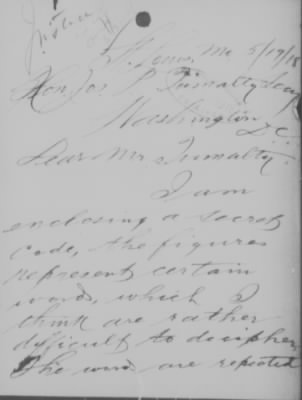 St. Louis, Mo 5/19/18
Hon. Jos P Tumalty Secy
Washington D.C.
Dear Mr. Tumalty:
I am
enclosing a secret
code, the figures
represent certain
words, which I
think are rather
difficult to decipher,
The words are repeated